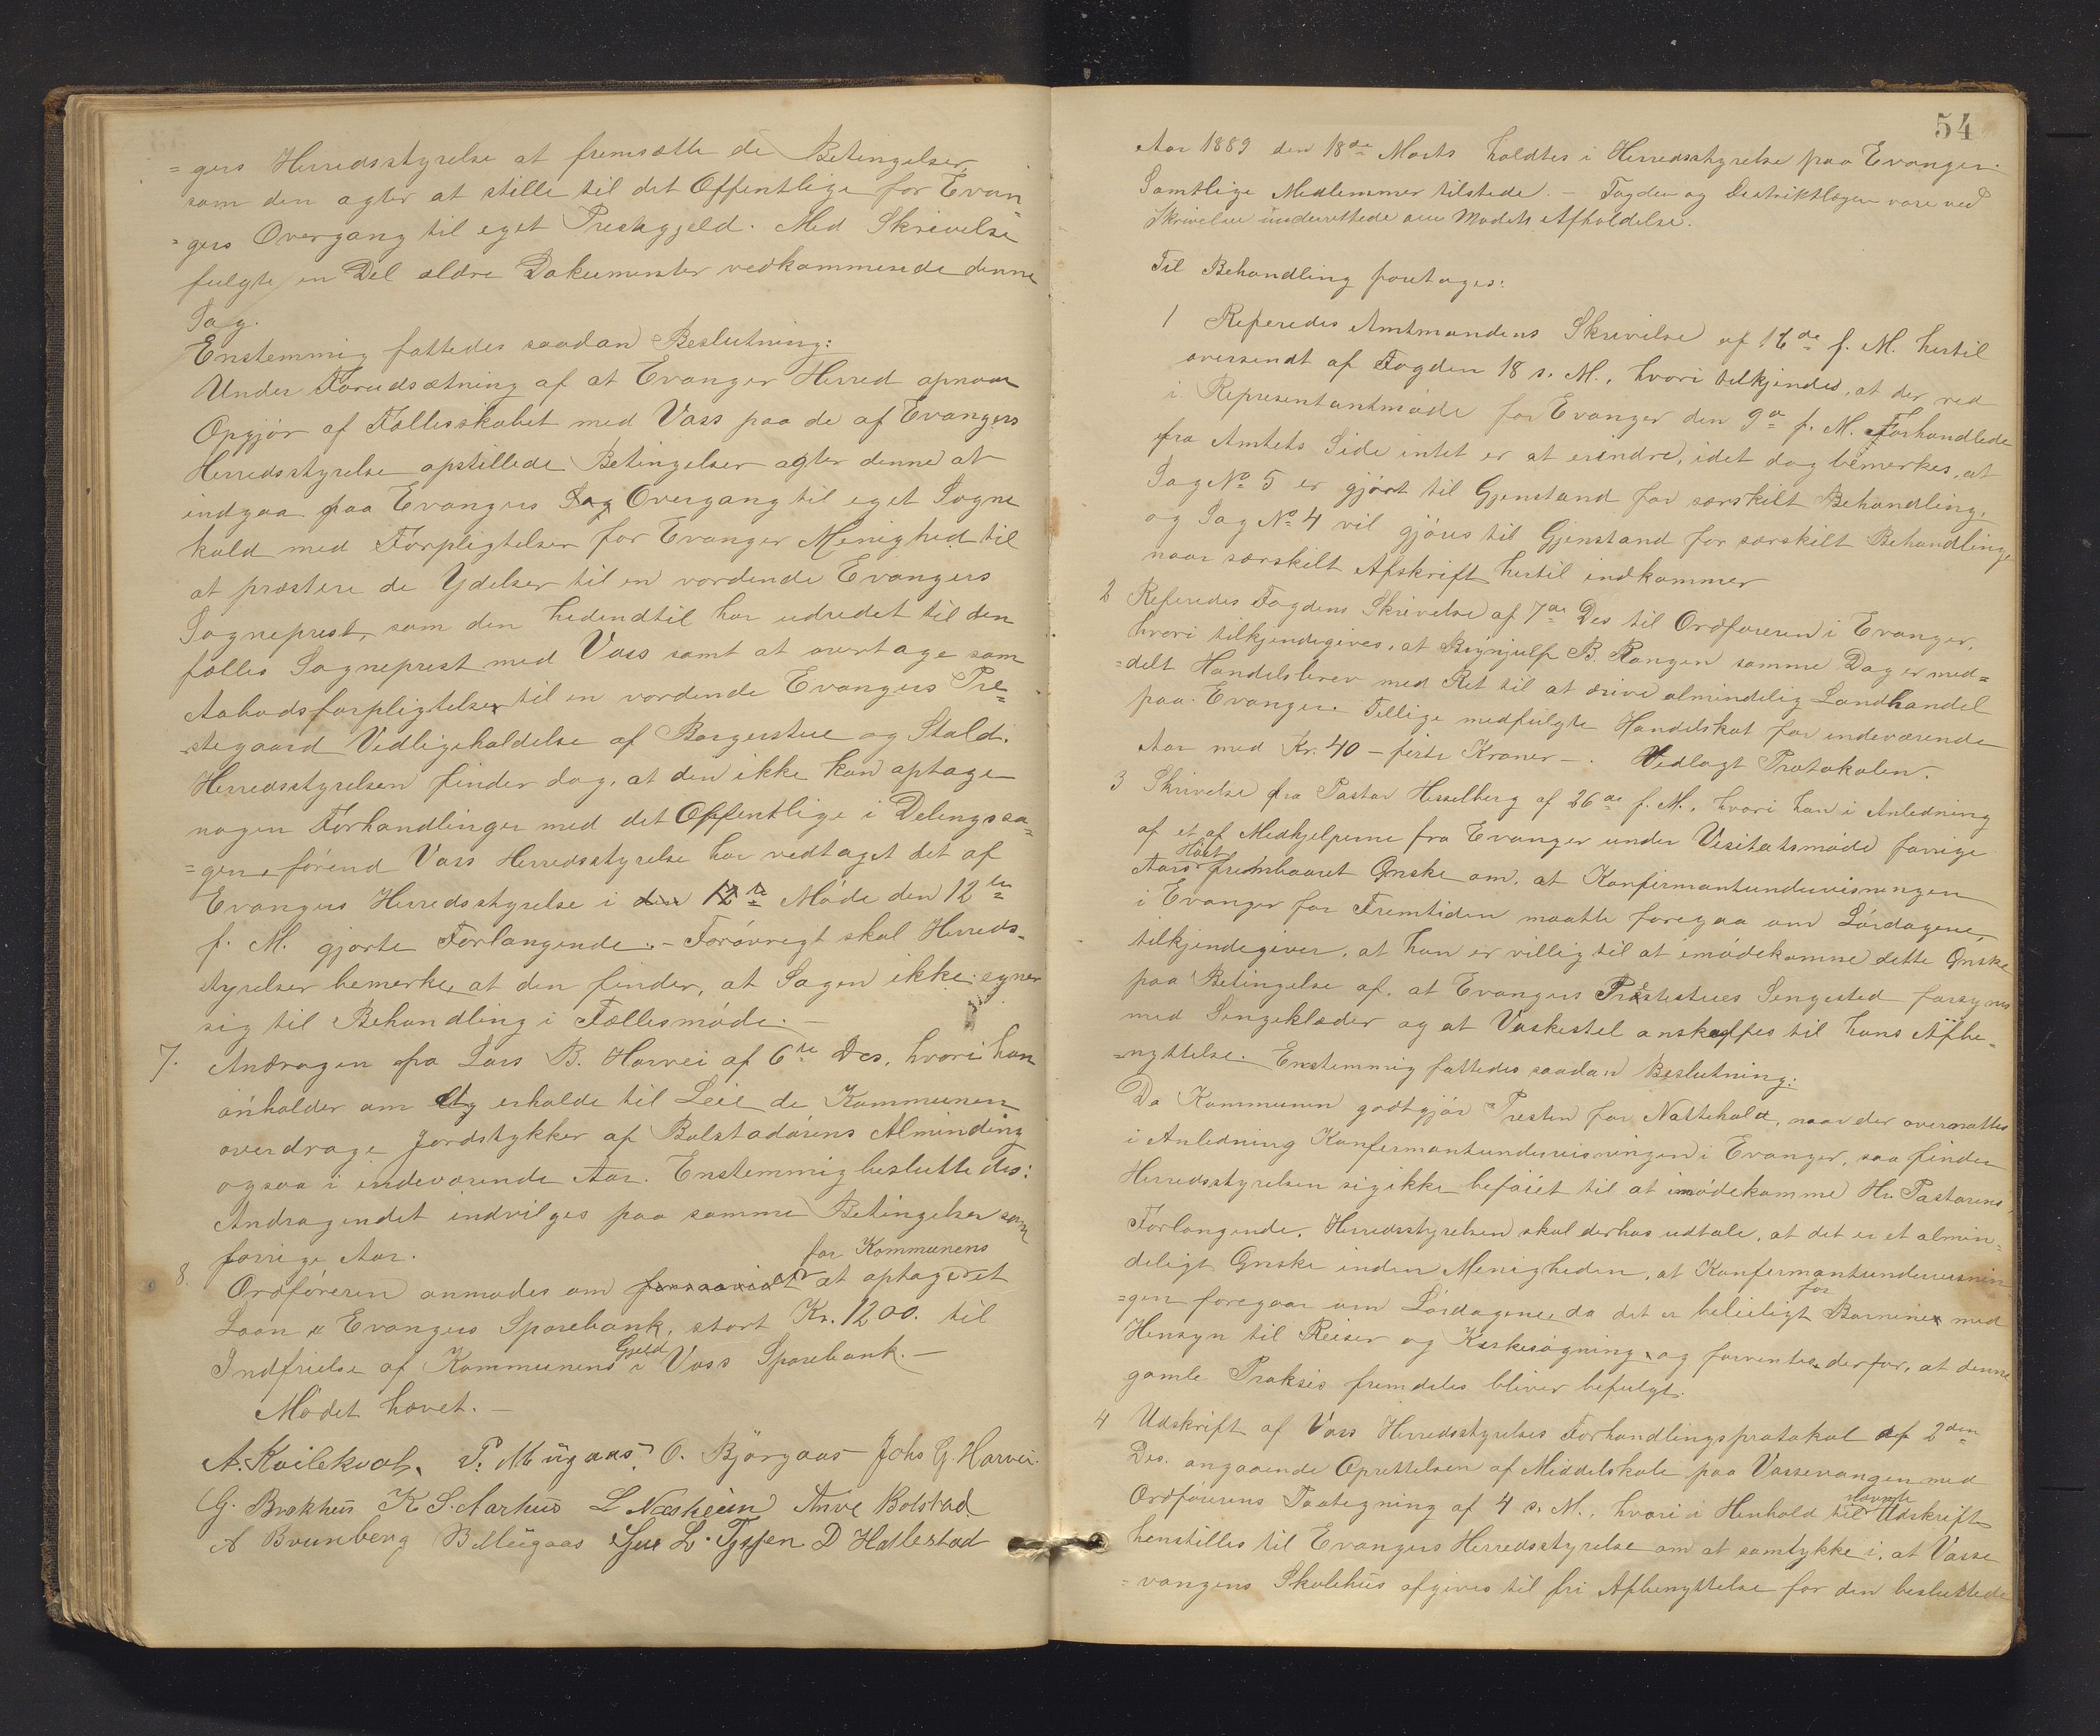 =gers Herredsstyrelse at fremsætte de Betingelser
som den agter at stille til det Offentlige for Evan
=gers Overgang til eget Prestegjeld. Med Skrivelse
fulgte en Del ældre Dokumenter vedkommende denne
Sag.
Enstemmig fattedes saadan Beslutning:
Under Forudsætning af at Evanger Herred opnaar
Opgjör af Fællesskabet med Voss paa de af Evangers
Herredsstyrelse opstillede Betingelser agter denne at
indgaa paa Evangers Overgang til eget Sogne
kald med Forpligtelser for Evanger Menighed til
at præstere de Ydelser til en vordende Evangers
Sogneprest, som den hedendtil har udredet til den
fælles Sogneprest med Voss samt at overtage som
Aabodsforpligtelser til en vordende Evangers Pre=
stegaard Vedligeholdelse af Borgerstue og Stald.
Herredsstyrelsen finder dog, at den ikke kan optage
nogen Forhandlinger med det Offentlige i Delingssa=
=gen, förend Voss Herredsstyrelse har vedtaget det af
Evangers Herredsstyrelse i Möde den 12te
f. M. gjorte Forlangende. - Forövregt skal Herreds-
styrelsen bemerke, at den finder, at Sagen ikke egner
sig til Behandling i Fællesmöde. -
7. Andragen fra Lars B. Horvei af 6te Ds, hvori han
anholder om at erholde til Leie de Kommunen
overdrage Jordstykker af Bolstadörens Alminding
ogsaa i indeværende Aar. Enstemmig besluttedes:
Andragendet indvilges paa samme Betingelser som
forrige Aar.
for Kommunens
8. Ordföreren anmodes om at optage et
Laan i Evangers Sparebank, stort Kr. 1200. til
Indfrielse af Kommunens Gjeld i Voss Sparebank. -
Mödet hævet. -
A. Kvilekval, P. Mügaas, O. Björgaas Johs G. Horvei.
G. Brakhus K S. Aarhus L Næsheim Anve Bolstad
A Brunberg B Mügaas L. Tyssen D Hallestad
54
Aar 1889 den 18de Marts holdtes i Herredsstyrelse paa Evanger.
Samtlige Medlemmer tilstede. - Fogden og Distriktlægen vare ved
Skrivelse underrettede om Mödets Afholdelse.
Til Behandling foretages:
1 Referedes Amtmandens Skrivelse af 16de f. M. hertil
oversendt af Fogden 18 s. M., hvori tilkjendes, at der ved
i Representantmöde for Evanger den 9de f. M. Forhandlede
fra Amtets Side intet er at erindre, idet dog bemerkes, at
Sag No 5 er gjört til Gjenstand for særskilt Behandling,
og Sag No 4 vil gjöres til Gjenstand for særskilt Behandling,
naar særskilt Afskrift hertil indkommer
2 Referedes Fogdens Skrivelse af 7de Ds til Ordföreren i Evanger,
hvori tilkjendegives, at Brynjulf B. Rongen samme Dag er med=
=delt Handelsbrev med Ret til at drive almindelig Landhandel
paa Evanger. Tillige medfulgte Handelskat for indeværende
Aar med Kr. 40 - firti Kroner -. Vedlagt Protokolen.
3 Skrivelse fra Pastor Hesselberg af 26de f. M., hvori han i Anledning
af et af Medhjelperne fra Evanger under Visitatsmöde forrige
Aars Höst frembaaret Önske om, at Konfirmantundervisningen
i Evanger for Fremtiden maatte foregaa om Lördagene,
tilkjendegiver, at han er villig til at imödekomme dette Önske
paa Betingelse af, at Evangers Prestestues Sengested forsynes
med Sengeklæder og at Vaskestel anskaffes til hans Afbe-
=nyttelse. Enstemmig fattedes saadan Beslutning:
Da Kommunen godtgjör Presten for Nattehold, naar der overnattes
i Anledning Konfermantundervisningen i Evanger, saa finder
Herredsstyrelsen sig ikke beföiet til at imödekomme Hr. Pastorens
Forlangende. Herredsstyrelsen skal derhos udtale, at det er et almin=
deligt Önske inden Menigheden, at Konfermantundervisnin
=gen foregaar om Lördagene, da det er beleiligt for Börnene med
Hensyn til Reiser og Kirkesögning, og forventer derfor, at denne
gamle Praksis fremdeles bliver befulgt.
4 Udskrift af Voss Herredsstyrelses Forhandlingsprotokol af 2den
Ds. angaaende Oprettelsen af Middelskole paa Vossevangen med
Ordförerens Paategning af 4 s. M., hvori i Henhold til nævnte Udskrift
henstilles til Evangers Herredsstyrelse om at samtykke i, at Vosse
=vangens Skolehus afgives til fri Afbenyttelse for den besluttede